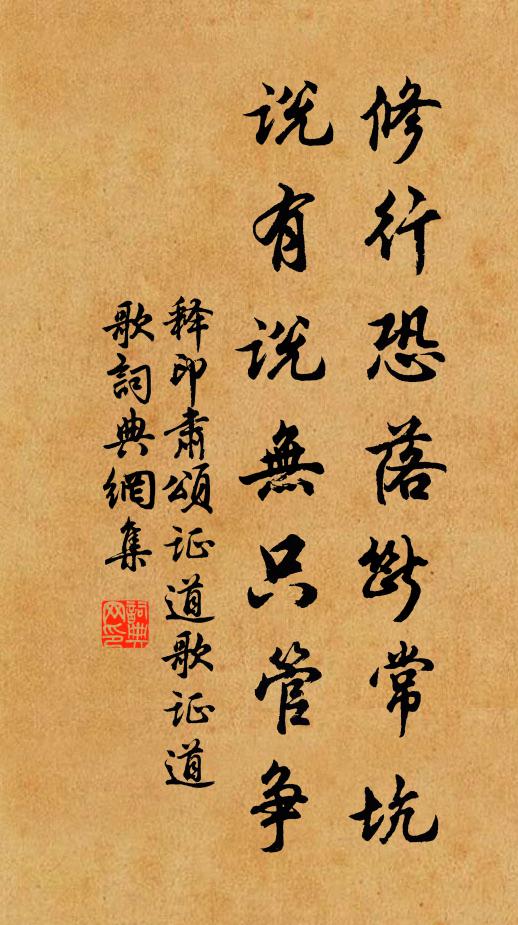 修行恐落断常坑
说有说無只管争
释印肃颂证道歌证道
歌詞典網集
詞典网印